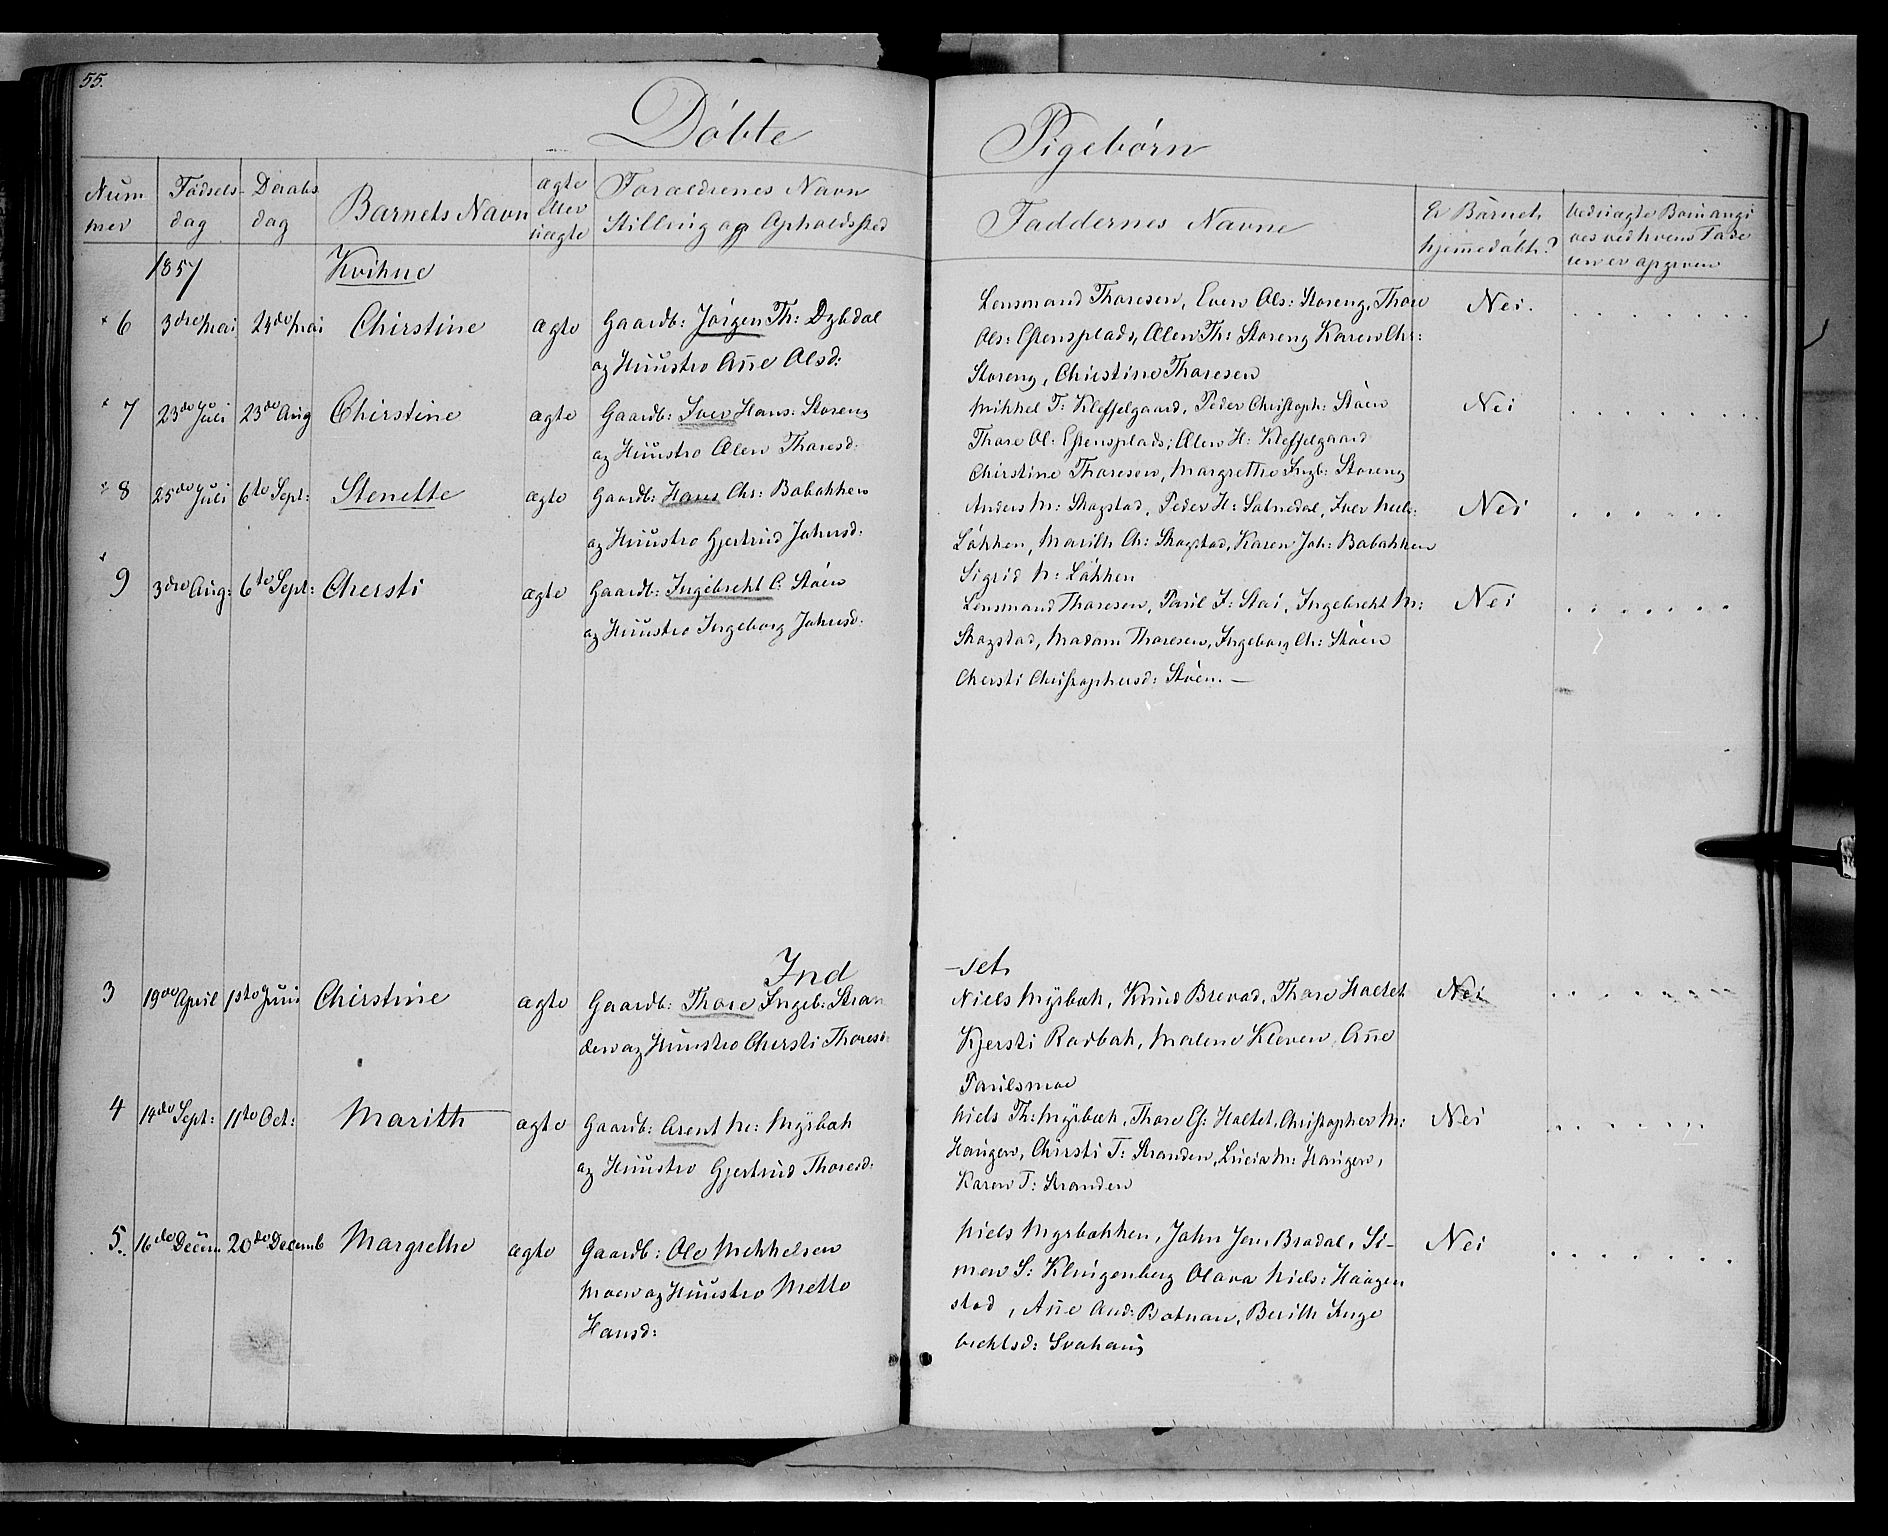 55.
Döbte Pigebörn
Num
mer
Fødsels-
dag
Daabs
dag
Barnets Navn
ægte
eller
uægte
Forældrenes Navn
Stilling og Opholdssted
Faddernes Navne
Er Barnet
hjemmedöbt?
Ved uægte Børn angi
ves ved hvem Fade
ren er opgiven
1857
Kvikne
6 3die Mai 24de Mai Chirstine ægte Gaardb: Jörgen Th: Dybdal
og Huustro Añe Olsd:
Lensmand Thoresen, Even Ols: Storeng, Thore
Ols: Estensplads, Ælen Th: Storeng Karen Chr:
Storeng, Christine Thoresen
Nei.
7 23de Juli 23de Aug Chirstine ægte Gaardb: Iver Hans: Storeng
og Huustro Ælen Thoresd:
Mikkel T: Kleffelgaard, Peder Christoph: Stöen
Thore Ol: Estensplads, Ælen H: Kleffelgaard
Chirstine Thoresen, Margrethe Ingb: Storeng
Nei
8 25de Juli 6te Sept: Stenette ægte Gaardb: Hans Chr: Bobakken
og Huustro Gjertrud Johnsd:
Anders M: Skogstad, Peder H: Satnedal, Iver
Lökken, Marith Ch: Skogstad, Karen Joh: Bobakken
Sigrid N: Lökken
Nei
9 3die Aug: 6te Sept: Chersti ægte Gaardb: Ingebrekt C: Stöen
og Huustro Ingeborg Johnsd:
Lensmand Thoresen, Paul J: Stai, Ingebrekt M:
Skogstad, Madam Thoresen, Ingeborg Ch: Stöen
Chersti Christophersd: Stöen. —
Nei
Ind -set
3 19de April 1ste Juni Chirstine ægte Gaardb: Thore Ingeb: Stran
den og Huustro Chersti Thoresd:
Niels Myrbæk, Knud Brevad, Thore Haltet
Kjersti Rødbæk, Malene Kleven, Añe
Paulsmoe
Nei
4 14de Sept: 11te Oct: Marith ægte Gaardb: Arent N: Myrbæk
og Huustro Gjertrud Thoresd:
Niels Th: Myrbæk, Thore Es: Haltet, Christopher M:
Haugen, Chirsti T: Stranden, Lucia M: Haugen,
Karen T: Stranden
Nei
5. 16de Decem. 20de Decemb Margrethe ægte Gaardb: Ole Mekkelsen
Moen og Huustro Mette
Hansd:
Niels Myrbækken, John Jen. Bradal, Si-
men S: Klingenberg Olava Niels: Haagen
stad, Añe And: Botnan, Berith Inge
brektsd: Svahaug
Nei